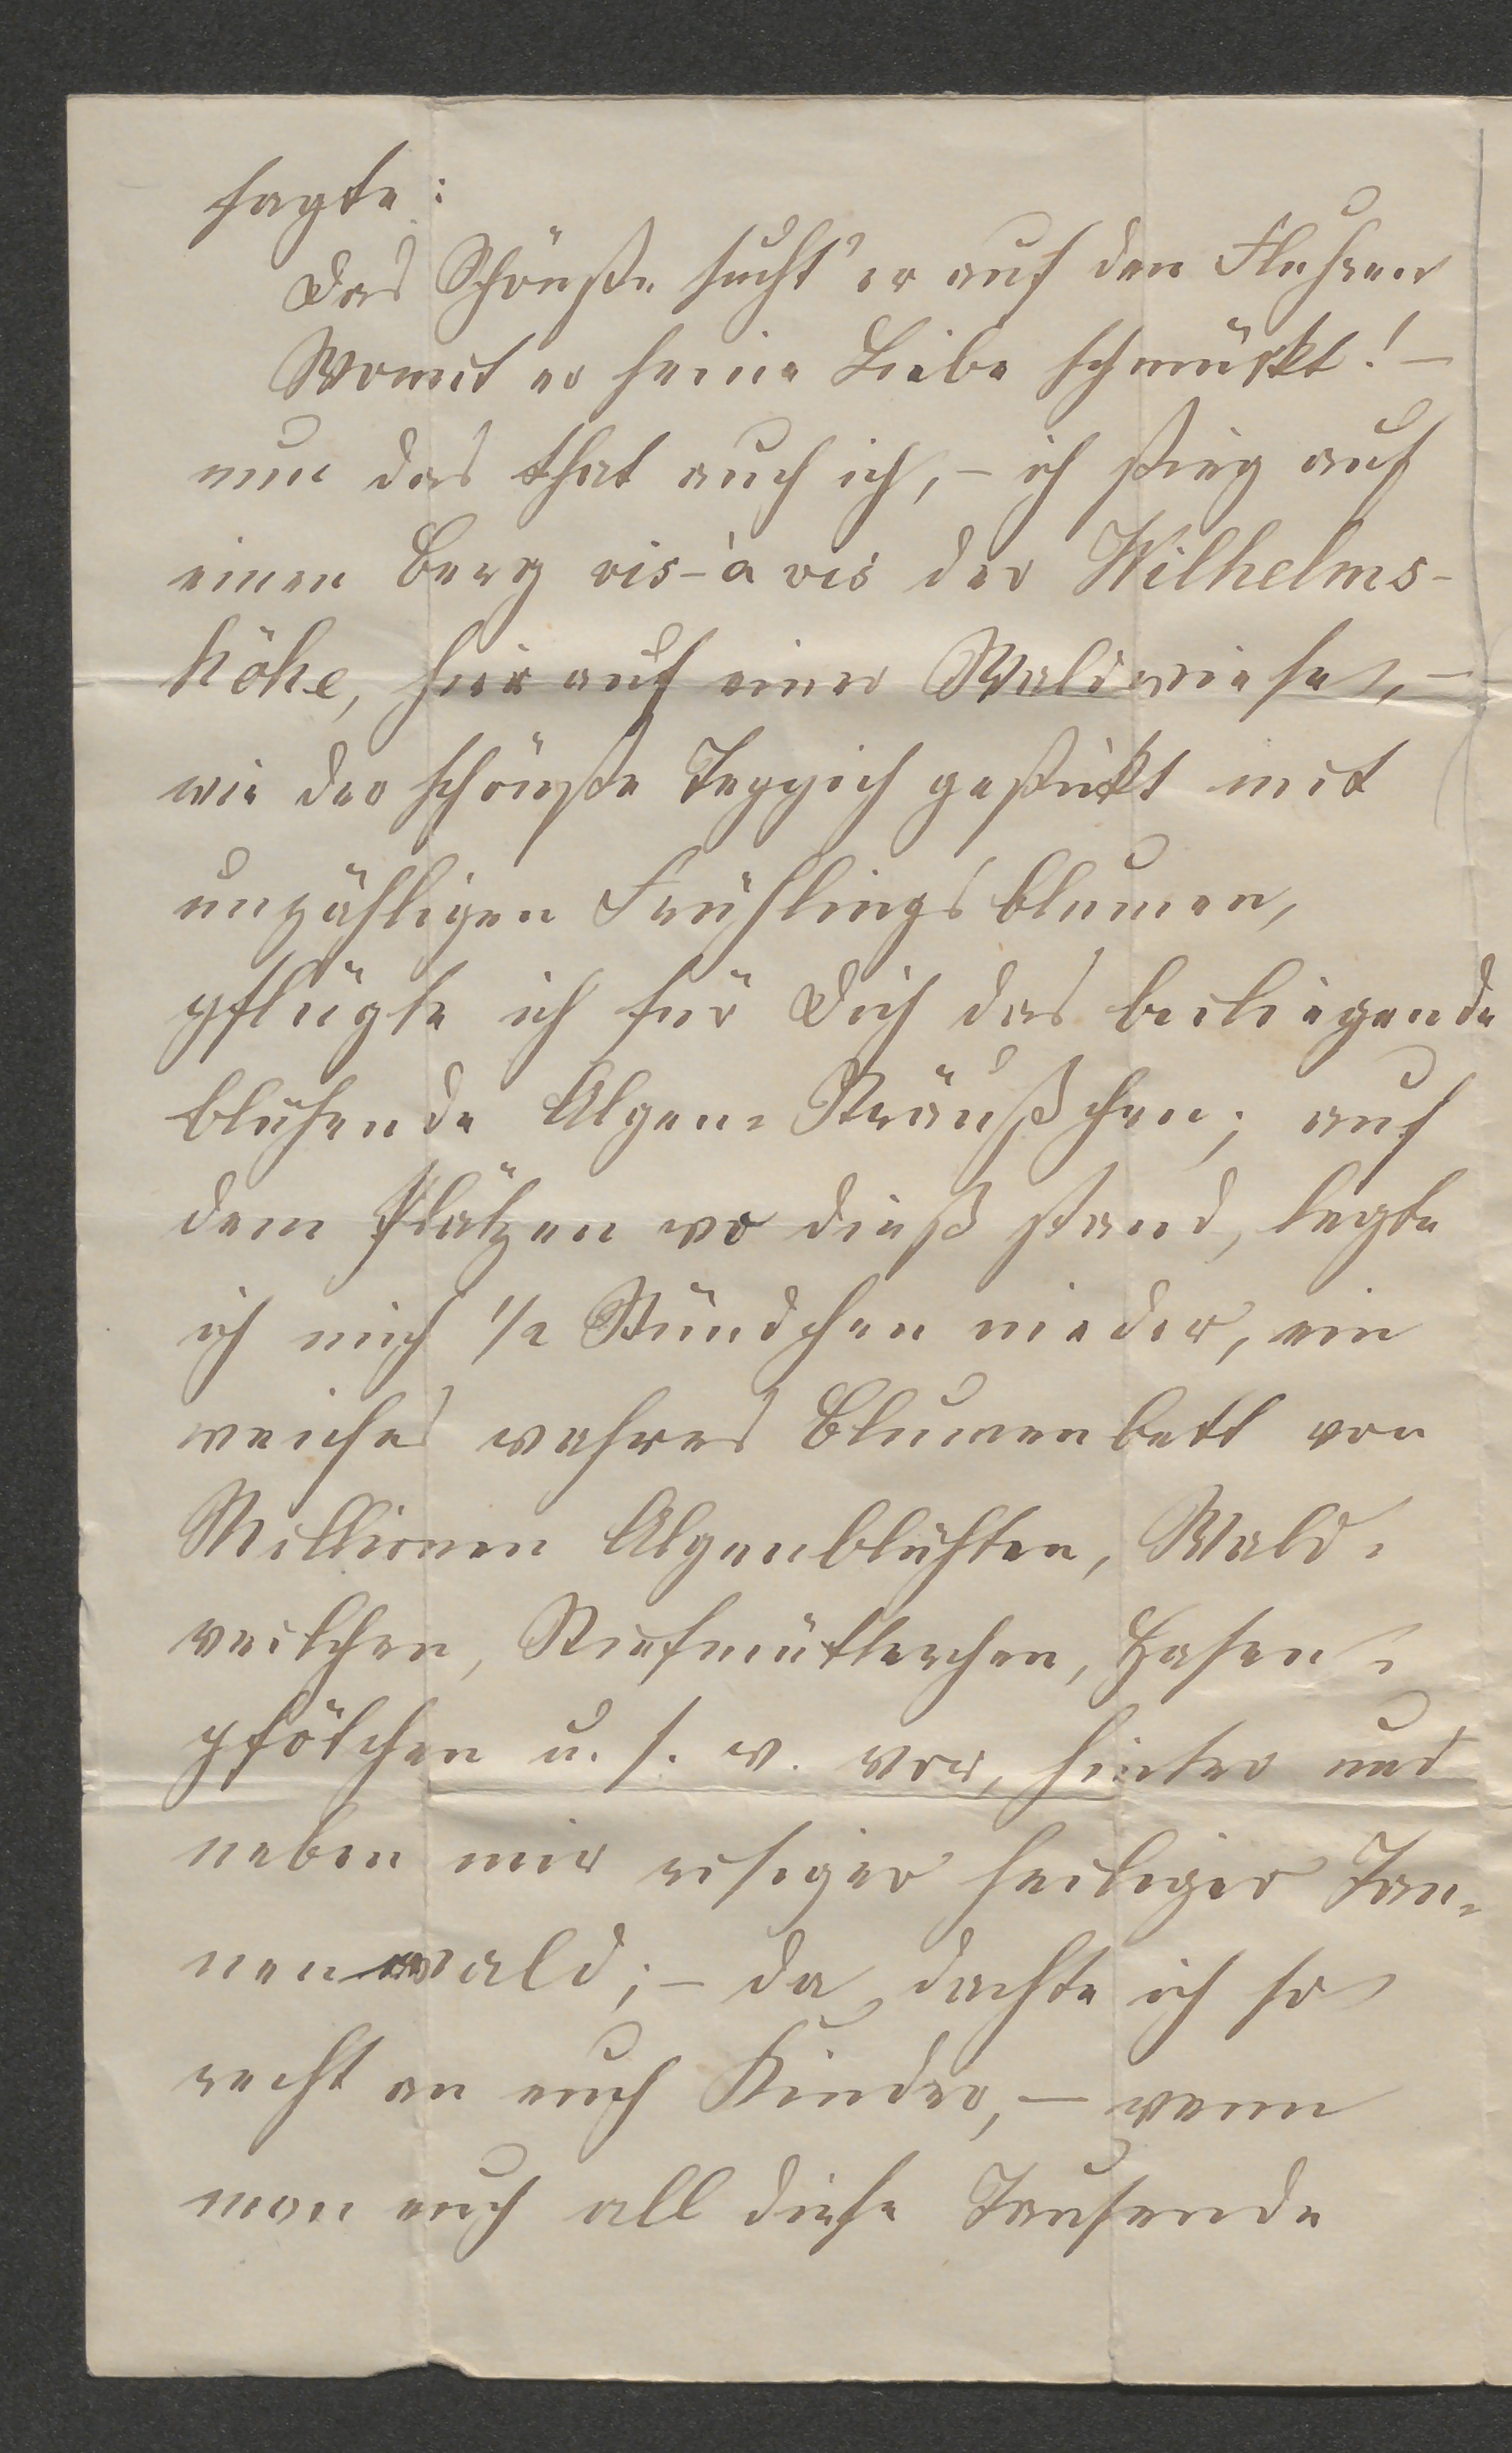 sagte:
Das Schönste sucht' er auf den Fluhren
Womit er seine Liebe schmückt! –
nun das that auch ich, – ich stieg auf
einen Berg vis-à vis der Wilhelms-
höhe, hier auf einer Waldwiese, –
wie der schönste Teppich gestickt mit
unzähligen Frühlingsblumen,
pflügte ich für Dich das beiliegende
blühende Algen-Sträußchen; auf
dem Plätzen wo dieß stand, legte
ich mich 1/2 Stündchen nieder, ein
weiches wahres Blumenbett von
Millionen Algenblühten, Wald-
veilchen, Stiefmütterchen, Hasen-
pfötchen u. s. w. vor, hinter und
neben mir risiger heiliger Tan-
nenwald; – da dachte ich so
recht an euch Kinder, – wenn
man euch all diese Tausende